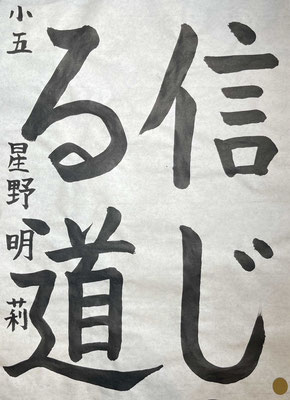 信じ
る道
小五 星野明莉